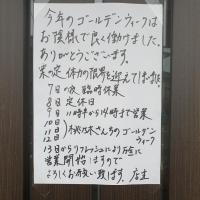 今年のゴールデンウィークは
お陰様で良く働けました。
ありがとうございます。
案の定 体力の限界を迎えてしまいました。
7日の夜 臨時休業
8日 定休日
9日 11時半から14時まで営業
10日
11日
12日
桃太さんちのゴールデン
ウィーク
13日からリフレッシュにより万全に
営業開始しますので
よろしくお願い致します。店主